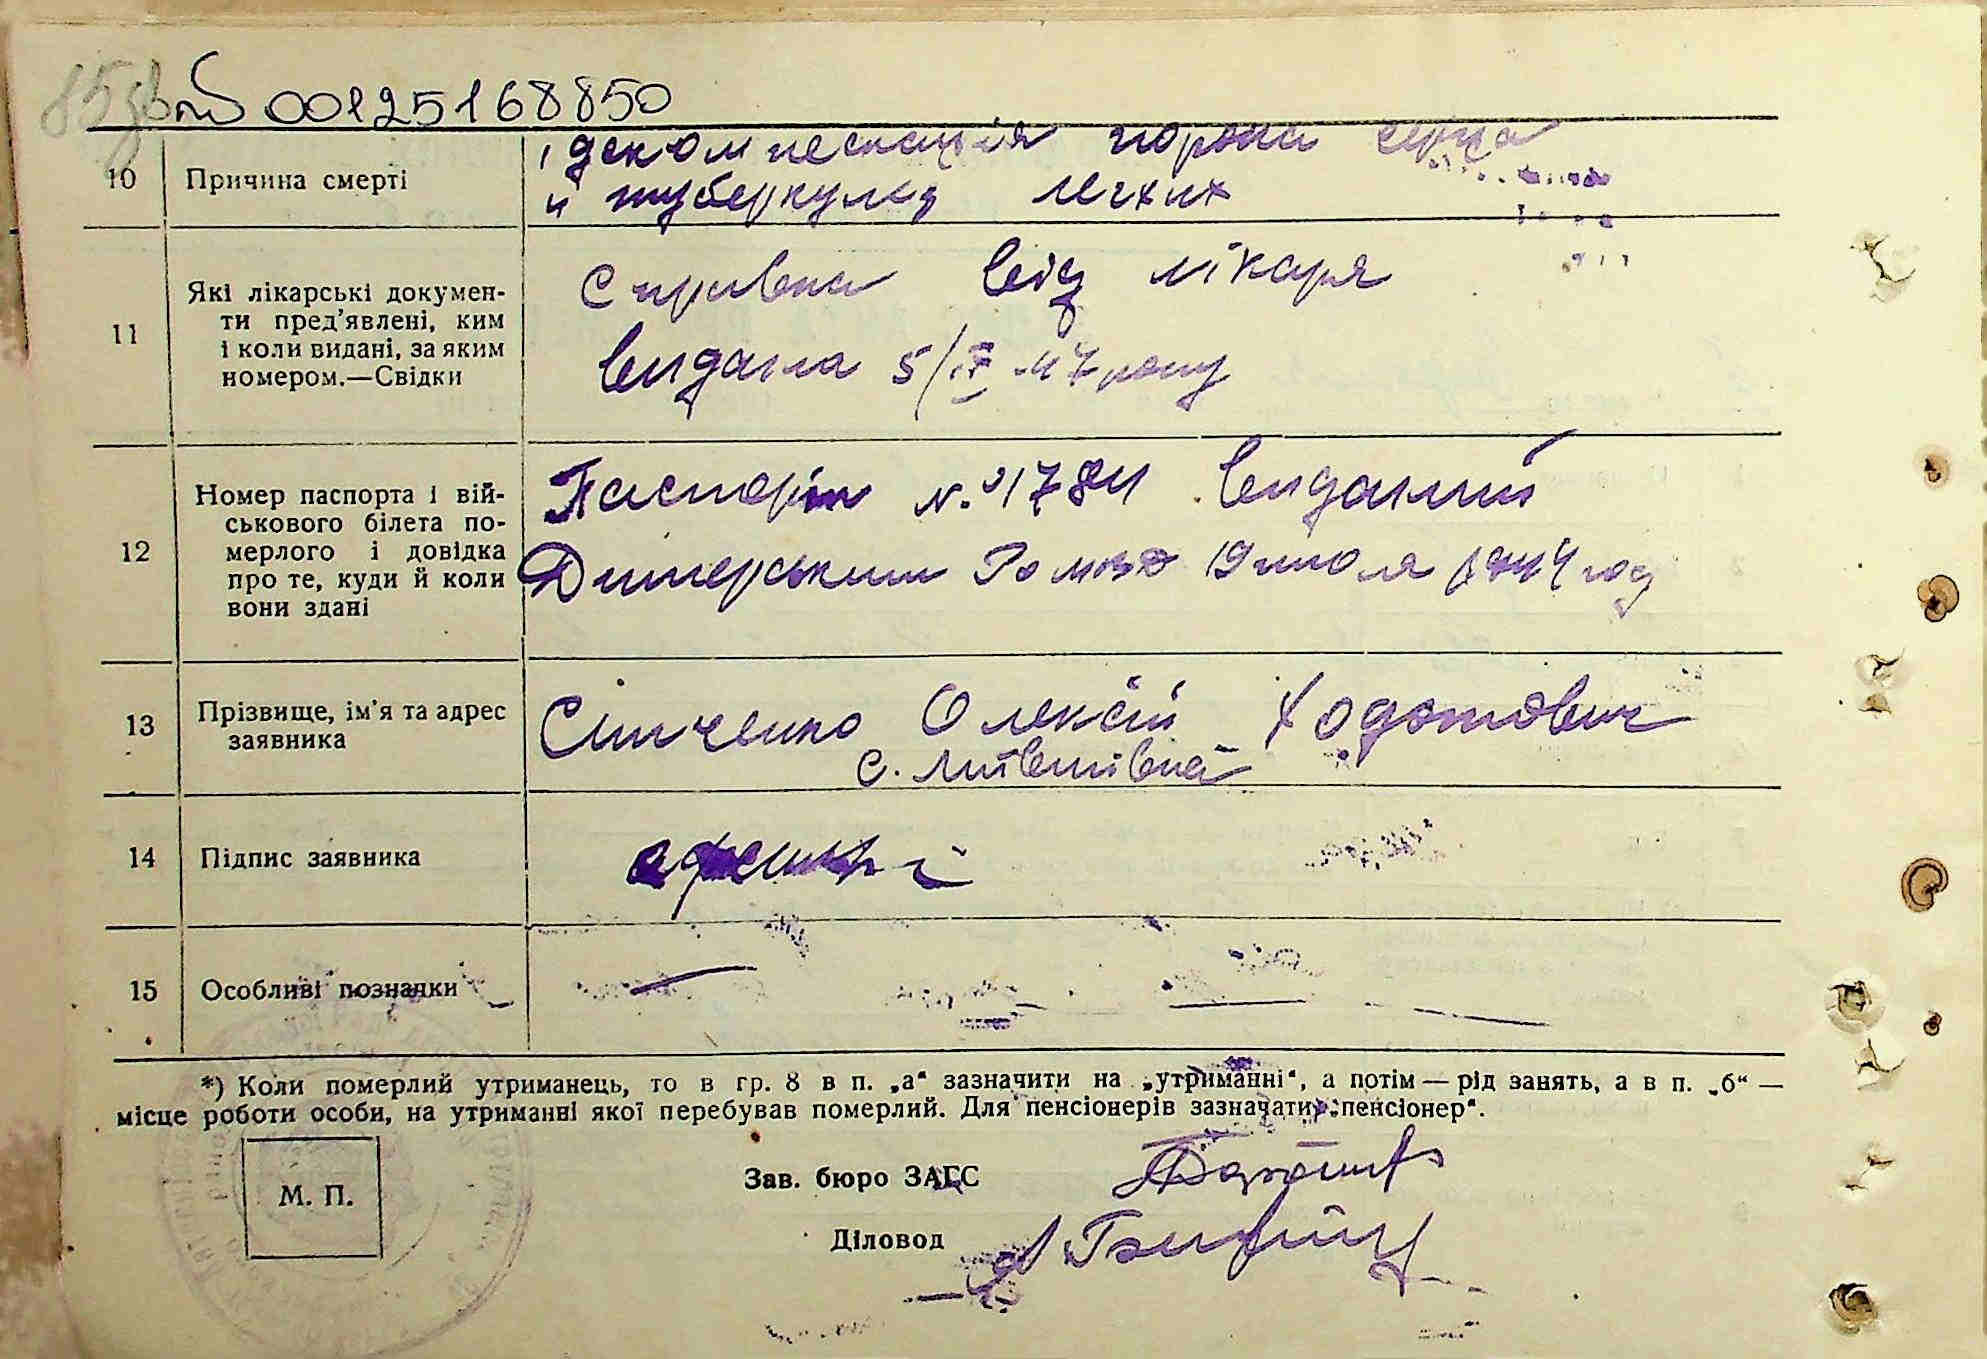 00125168850
10 Причина смерті
декомпенсація порока серца
и туберкулез легких
11 Які лікарські докумен-
ти пред'явлені, ким
і коли видані, за яким
номером.—Свідки
Справка від лікаря
видана 5/IV-47 року
12 Номер паспорта і вій-
ськового білета по-
мерлого і довідка
про те, куди й коли
вони здані
Паспорт №
виданий
Димерським 19 июля 1944 год
13 Прізвище, ім'я та адрес
заявника
Олексій Ходотович
с. Литвинівка
14 Підпис заявника
15 Особливі познаки
*) Коли померлий утриманець, то в гр. 8 в п. „а“ зазначити на „утриманні“, а потім — рід занять, а в п. „б“ —
місце роботи особи, на утриманні якої перебував померлий. Для пенсіонерів зазначати „пенсіонер“.
М. П.
Зав. бюро ЗАГС
Діловод